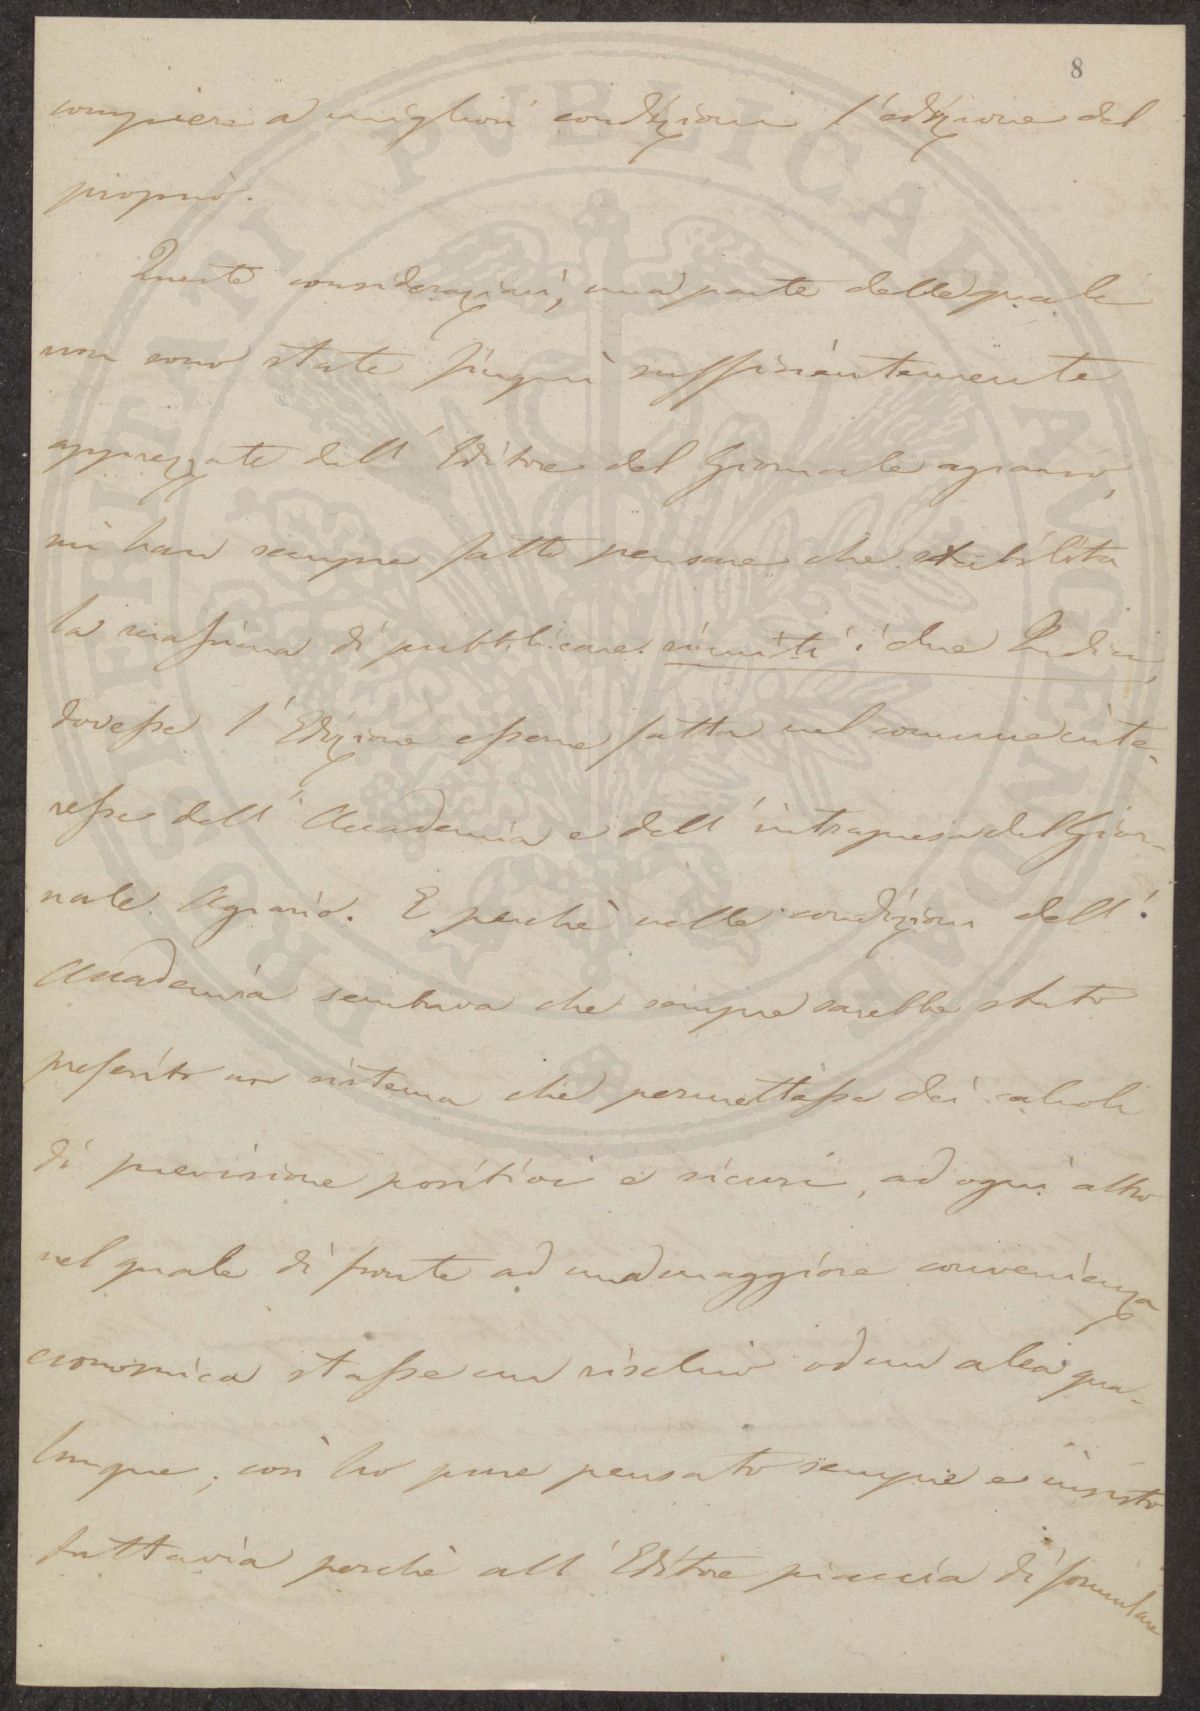 8
compiere a migliori condizioni l'edizione del
proprio.
Queste considerazioni, una parte delle quali
non sono state finquì sufficientemente
apprezzate dall' Editore del Giornale agrario,
mi han sempre fatto pensare che stabilita
la massima di pubblicare riuniti i due Indici,
dovesse l' Edizione essere fatta nel comune inte-
resse dell' Accademia e dell' intrapresa del Gior-
nale Agrario. E perchè nelle condizioni dell'
Accademia sembrava che sempre sarebbe stato
preferito un sistema che permettesse dei calcoli
di previsione positivi e sicuri, ad ogni altro
nel quale di fronte ad una maggiore convenienza
economica stasse un rischio od un alea qua-
lunque, così ho pure pensato sempre e insisto
tuttavia perchè all' Editore piaccia di formulare
PROSPERITATI PVBLICAE AVGENDAE